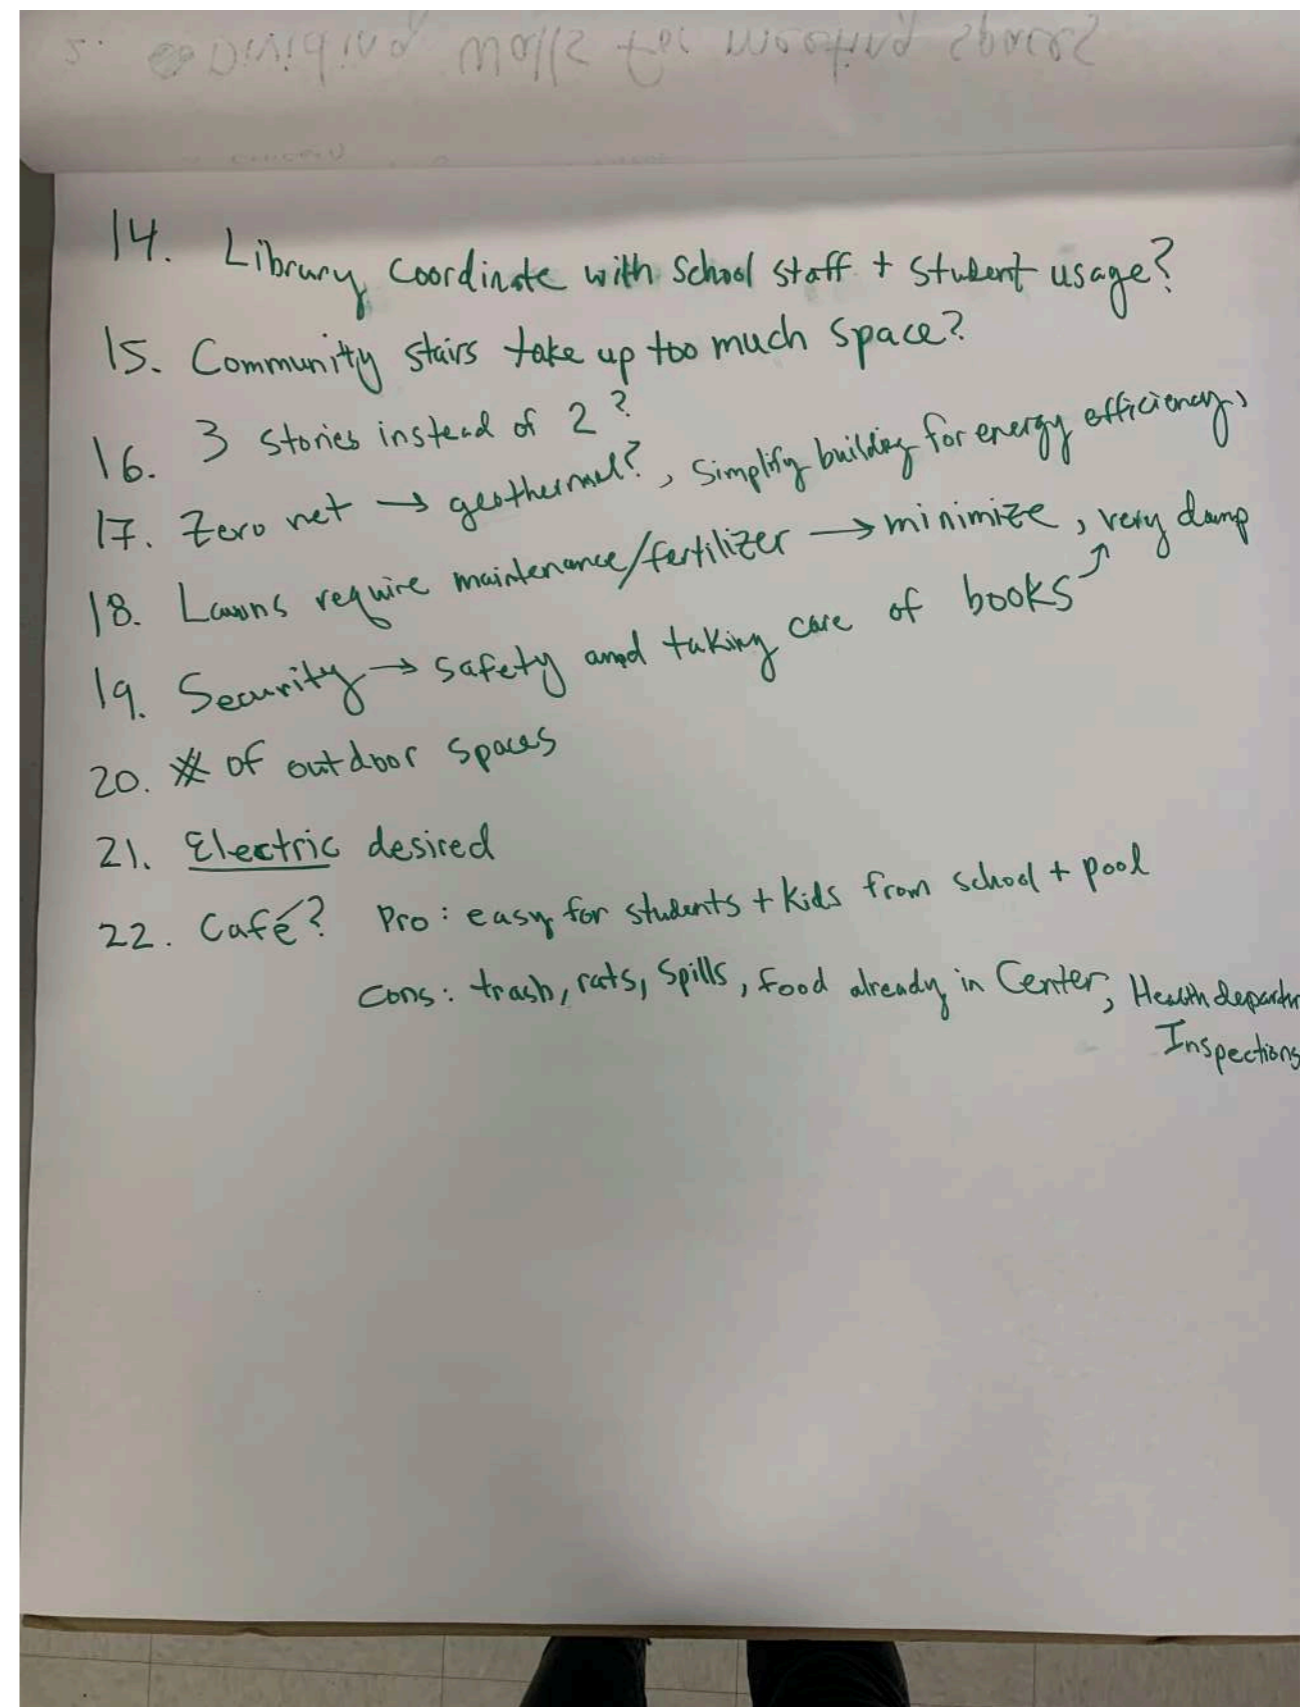 2. Dividing walls for meeting spaces
14. Library coordinate with School staff + student usage?
15. Community stairs take up too much space?
16. 3 stories instead of 2?
17. Zero net → geothermal?, simplify building for energy efficiency,
18. Lawns require maintenance/fertilizer → minimize, very damp
19. Security → safety and taking care of books
20. # of outdoor spaces
21. Electric desired
22. Café? Pro: easy for students + kids from school + pool
Cons: trash, rats, spills, food already in Center, Health departm
Inspections